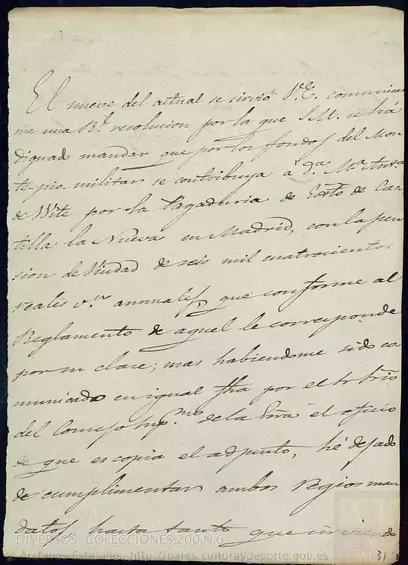 El nueve del actual se sirvió V.E. comunicar
me una Rl. resolucion por la que S.M. se há
dignado mandar que por los fondos del Mon
te pio militar se contribuya á Da. Ma. Anta.
de Wite por la Pagaduria de Exto. de Cas
tilla la Nueva en Madrid, con la pen
sion de Viudad de seis mil cuatrocientos
reales vn. annuales, que conforme al
Reglamento de aquel le corresponde
por su clase; mas habiendome sido co
municado en igual fha por el Sr. Srio
del Consejo Spmo. de la Grra el oficio
de que es copia el adjunto, hé dejado
de cumplimentar ambos Regios man
datos hasta tanto que
DIVERSOS-COLECCIONES,200,N.6
Archivos Estatales, http://pares.culturaydeporte.gob.es